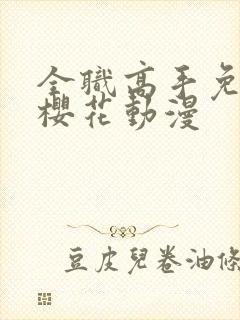 全職高手免
櫻花動漫
豆皮兒卷油條